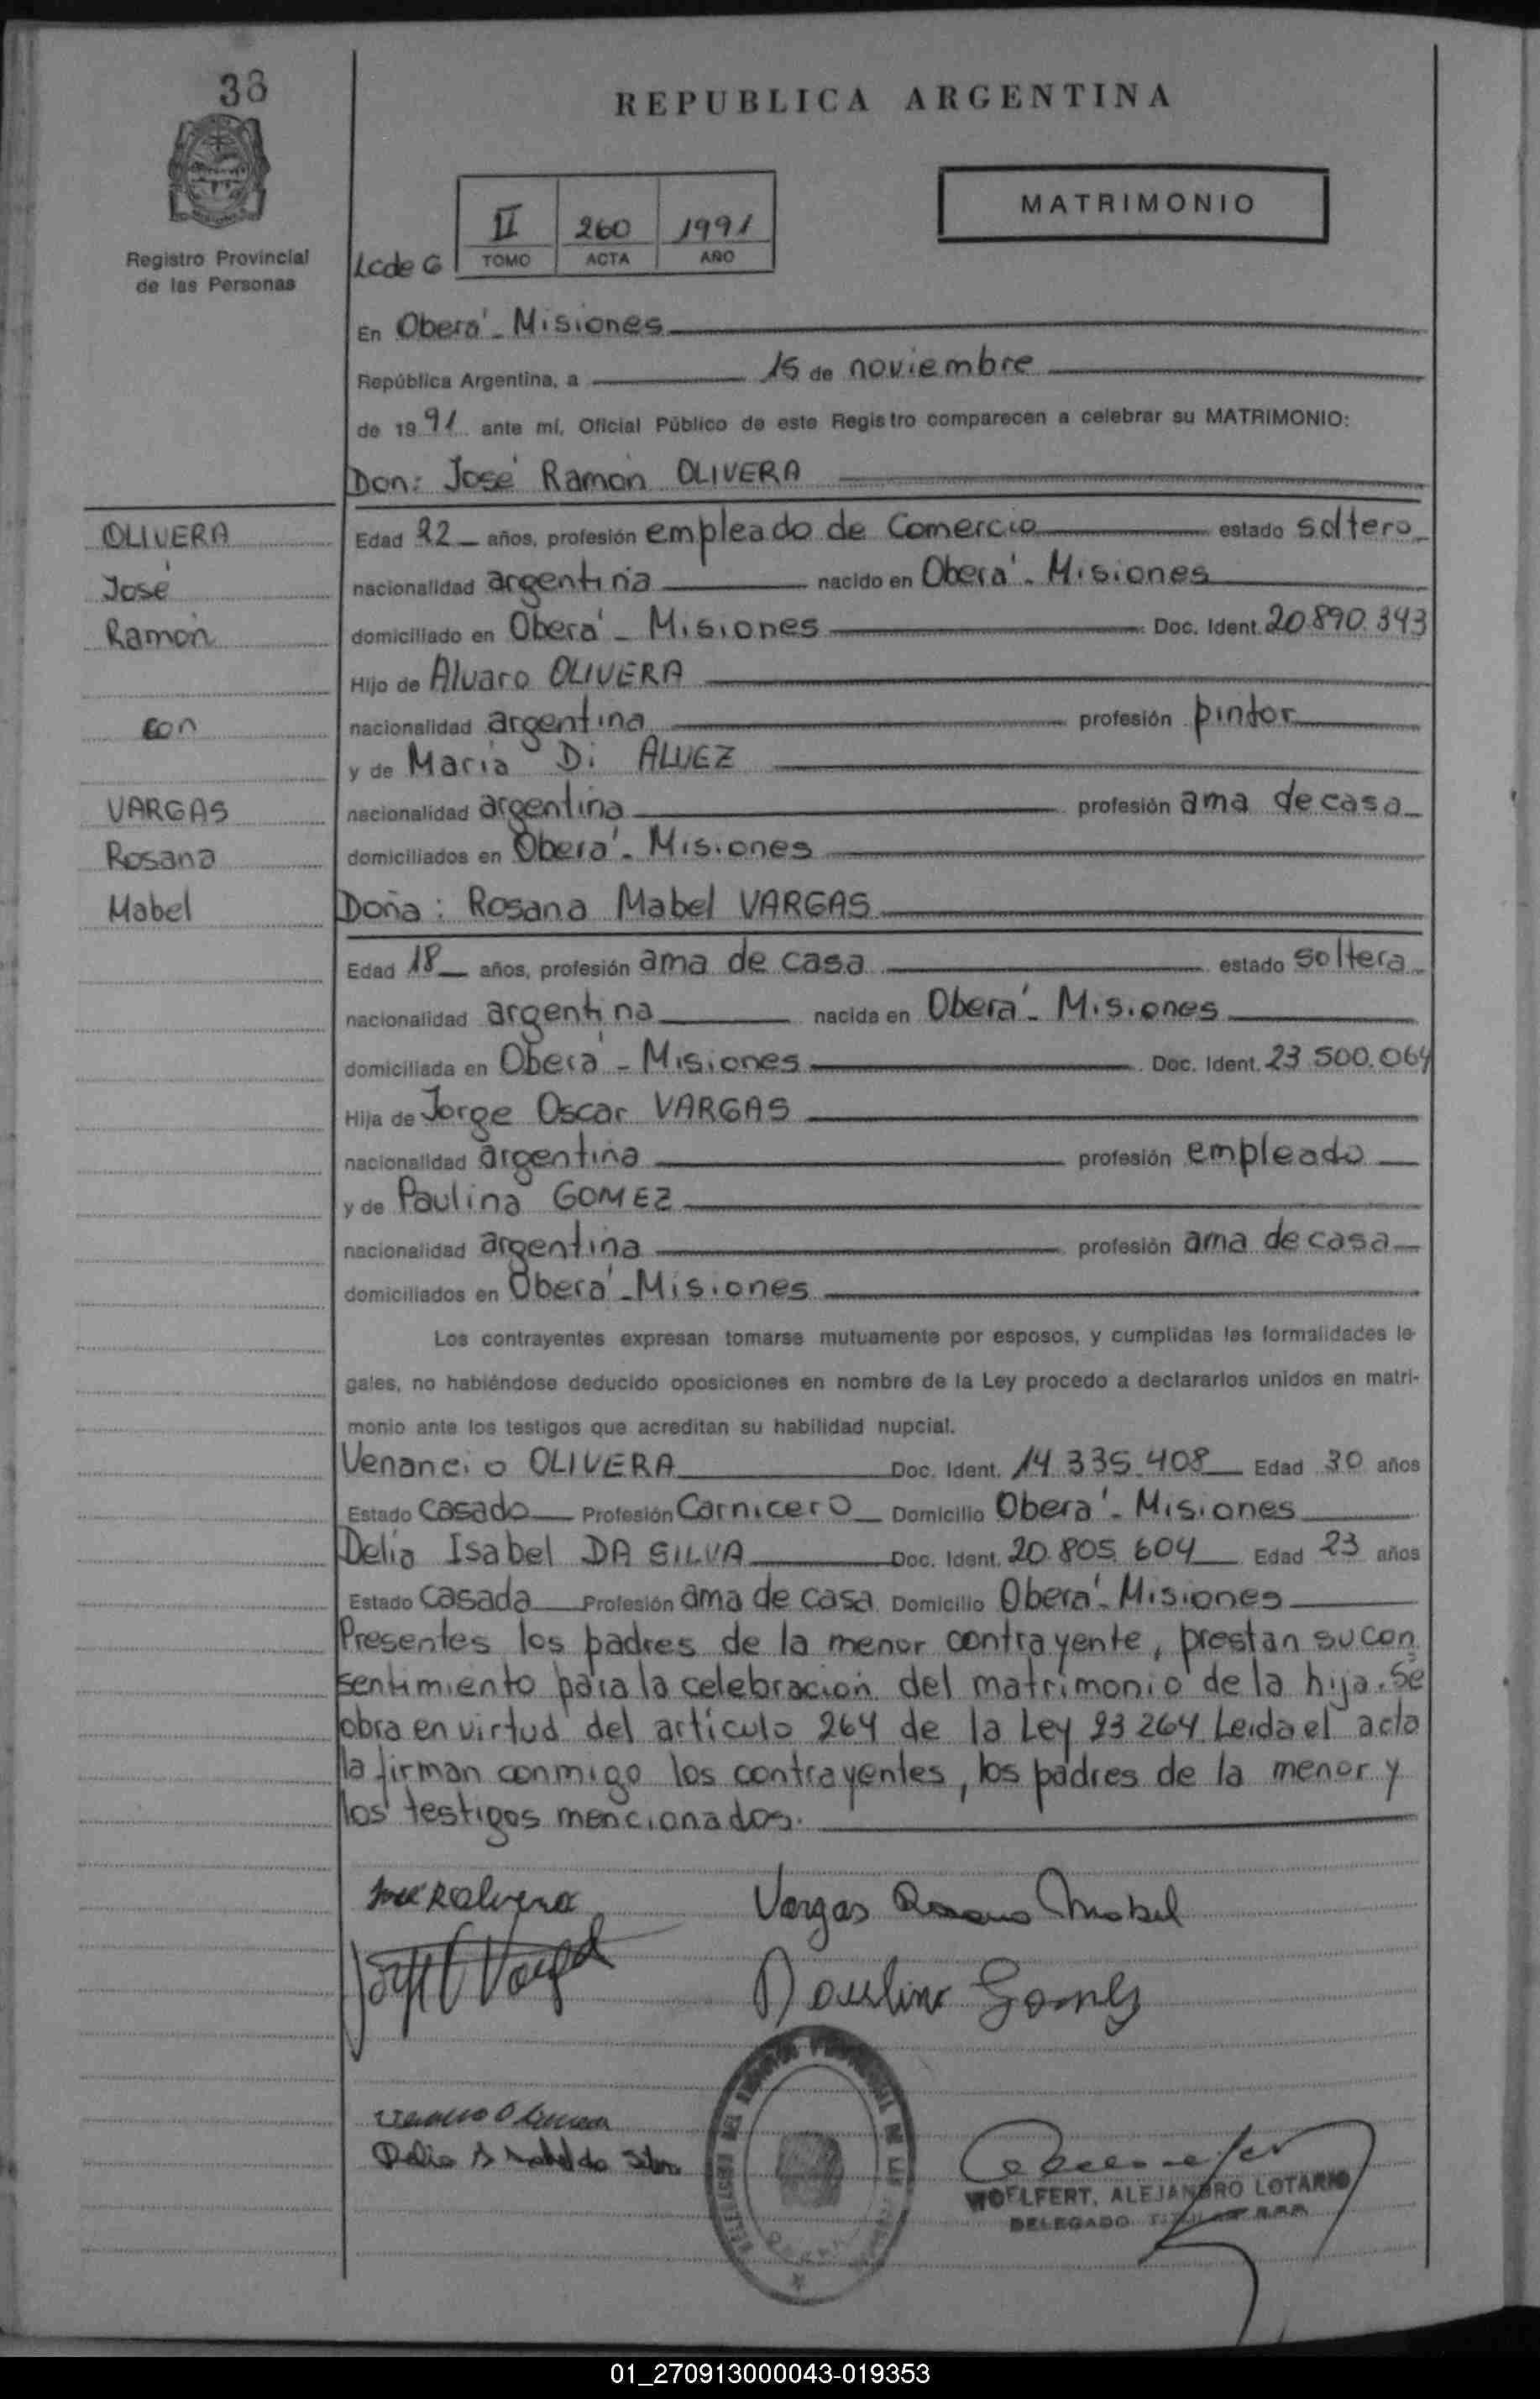 38
REPUBLICA ARGENTINA
MATRIMONIO
Registro Provincial
de las Personas
Lcde G
II 260 1991
TOMO ACTA AÑO
En Oberá - Misiones
República Argentina, a 15 de noviembre
de 1991 ante mí, Oficial Público de este Registro comparecen a celebrar su MATRIMONIO:
Don: José Ramón OLIVERA
OLIVERA
José
Ramón
con
VARGAS
Rosana
Mabel
Edad 22 años, profesión empleado de Comercio estado soltero
nacionalidad argentina nacido en Oberá - Misiones
domiciliado en Oberá - Misiones Doc. Ident. 20.890.343
Hijo de Alvaro OLIVERA
nacionalidad argentina profesión pintor
y de María Di ALVEZ
nacionalidad argentina profesión ama de casa
domiciliados en Oberá - Misiones
Doña: Rosana Mabel VARGAS
Edad 18 años, profesión ama de casa estado soltera
nacionalidad argentina nacida en Oberá - Misiones
domiciliada en Oberá - Misiones Doc. Ident. 23.500.064
Hija de Jorge Oscar VARGAS
nacionalidad argentina profesión empleado
y de Paulina GOMEZ
nacionalidad argentina profesión ama de casa
domiciliados en Oberá - Misiones
Los contrayentes expresan tomarse mutuamente por esposos, y cumplidas las formalidades le-
gales, no habiéndose deducido oposiciones en nombre de la Ley procedo a declararlos unidos en matri-
monio ante los testigos que acreditan su habilidad nupcial.
Venancio OLIVERA Doc. Ident. 14.335.408 Edad 30 años
Estado Casado Profesión Carnicero Domicilio Oberá - Misiones
Delia Isabel DA SILVA Doc. Ident. 20.805.604 Edad 23 años
Estado Casada Profesión ama de casa Domicilio Oberá - Misiones
Presentes los padres de la menor contrayente, prestan su con
sentimiento para la celebración del matrimonio de la hija. Se
obra en virtud del artículo 264 de la Ley 23.264. Leida el acta
la firman conmigo los contrayentes, los padres de la menor y
los testigos mencionados.
Vargas Rosana Mabel
Paulina Gomez
WOELFERT, ALEJANDRO LOTARIO
DELEGADO TITULAR R.P.P.
01_270913000043-019353